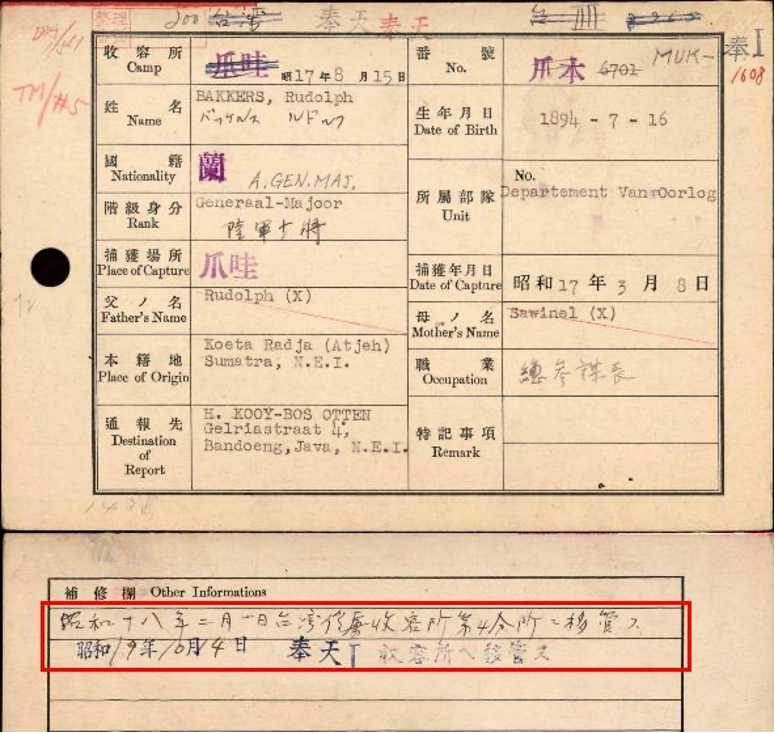 200 台湾 奉天 奉天
整理
収容所 Camp 爪哇 昭17年8月15日
番號 No. 爪本 6701 MUK- 奉I 1608
TM/#5
姓名 Name BAKKERS, Rudolph
バッケルス ルドルフ
生年月日 Date of Birth 1894 - 7 - 16
國籍 Nationality 蘭 A.GEN.MAJ.
階級身分 Rank Generaal-Majoor
陸軍少将
所屬部隊 Unit No.
Departement Van Oorlog
捕獲場所 Place of Capture 爪哇
捕獲年月日 Date of Capture 昭和17年3月8日
父ノ名 Father's Name Rudolph (X)
母ノ名 Mother's Name Sawinel (X)
本籍地 Place of Origin Koeta Radja (Atjeh)
Sumatra, N.E.I.
職業 Occupation 總参謀長
通報先 Destination of Report H. KOOY-BOS OTTEN
Gelriastraat 4,
Bandoeng, Java, N.E.I.
特記事項 Remark
補修欄 Other Informations
昭和十八年二月一日台湾俘虜収容所第4分所ニ移管ス
昭和19年10月4日 奉天I収容所へ移管ス